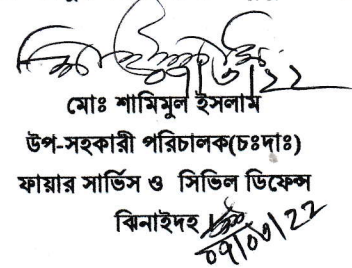 ০৭/৩/২২
মোঃ শামিমুল ইসলাম
উপ-সহকারী পরিচালক(চঃদাঃ)
ফায়ার সার্ভিস ও সিভিল ডিফেন্স
ঝিনাইদহ
০৭/০৩/২২